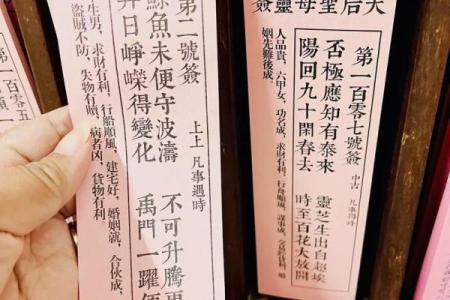 天后聖母靈簽
第一百零七號簽 中吉 凡事得時
否極應知有泰來 靈芝生出自超埃
陽回九十閑春去 時至百花大放開
人品貴,六甲女,功名成,求財有利,行舟順風,謀事成,交易有利,婚
姻先難後成。
第二號簽 上上 凡事遇時
鯨魚未便守波濤 不可升騰更
異日崢嶸得變化 禹門一躍便
生男,求財有利,行船順風,建宅好,婚姻就,合伙成,
盜賊不防,失物有,病者凶,貨物有利。
第一百零五